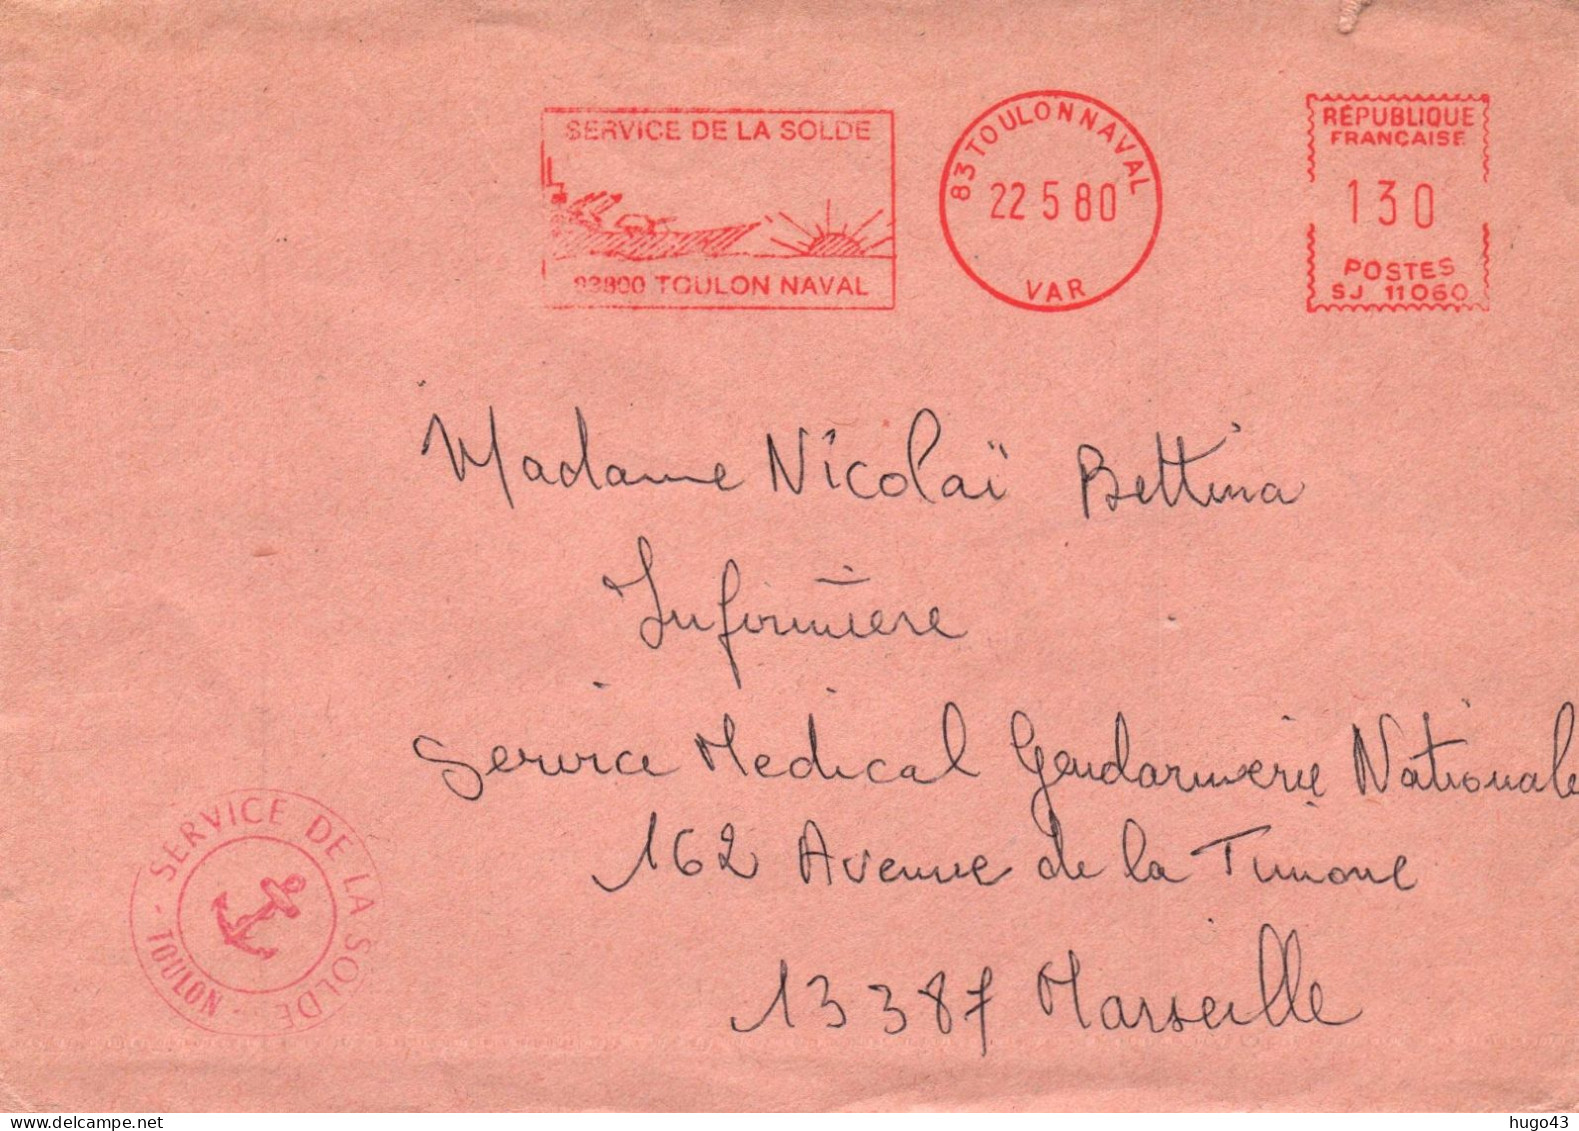 SERVICE DE LA SOLDE
83800 TOULON NAVAL
83 TOULON NAVAL
22 5 80
VAR
RÉPUBLIQUE
FRANÇAISE
130
POSTES
SJ 11060
Madame Nicolaï Bettina
Infirmière
Service Medical Gendarmerie Nationale
162 Avenue de la Timone
13387 Marseille
SERVICE DE LA SOLDE
- TOULON -
hugo43